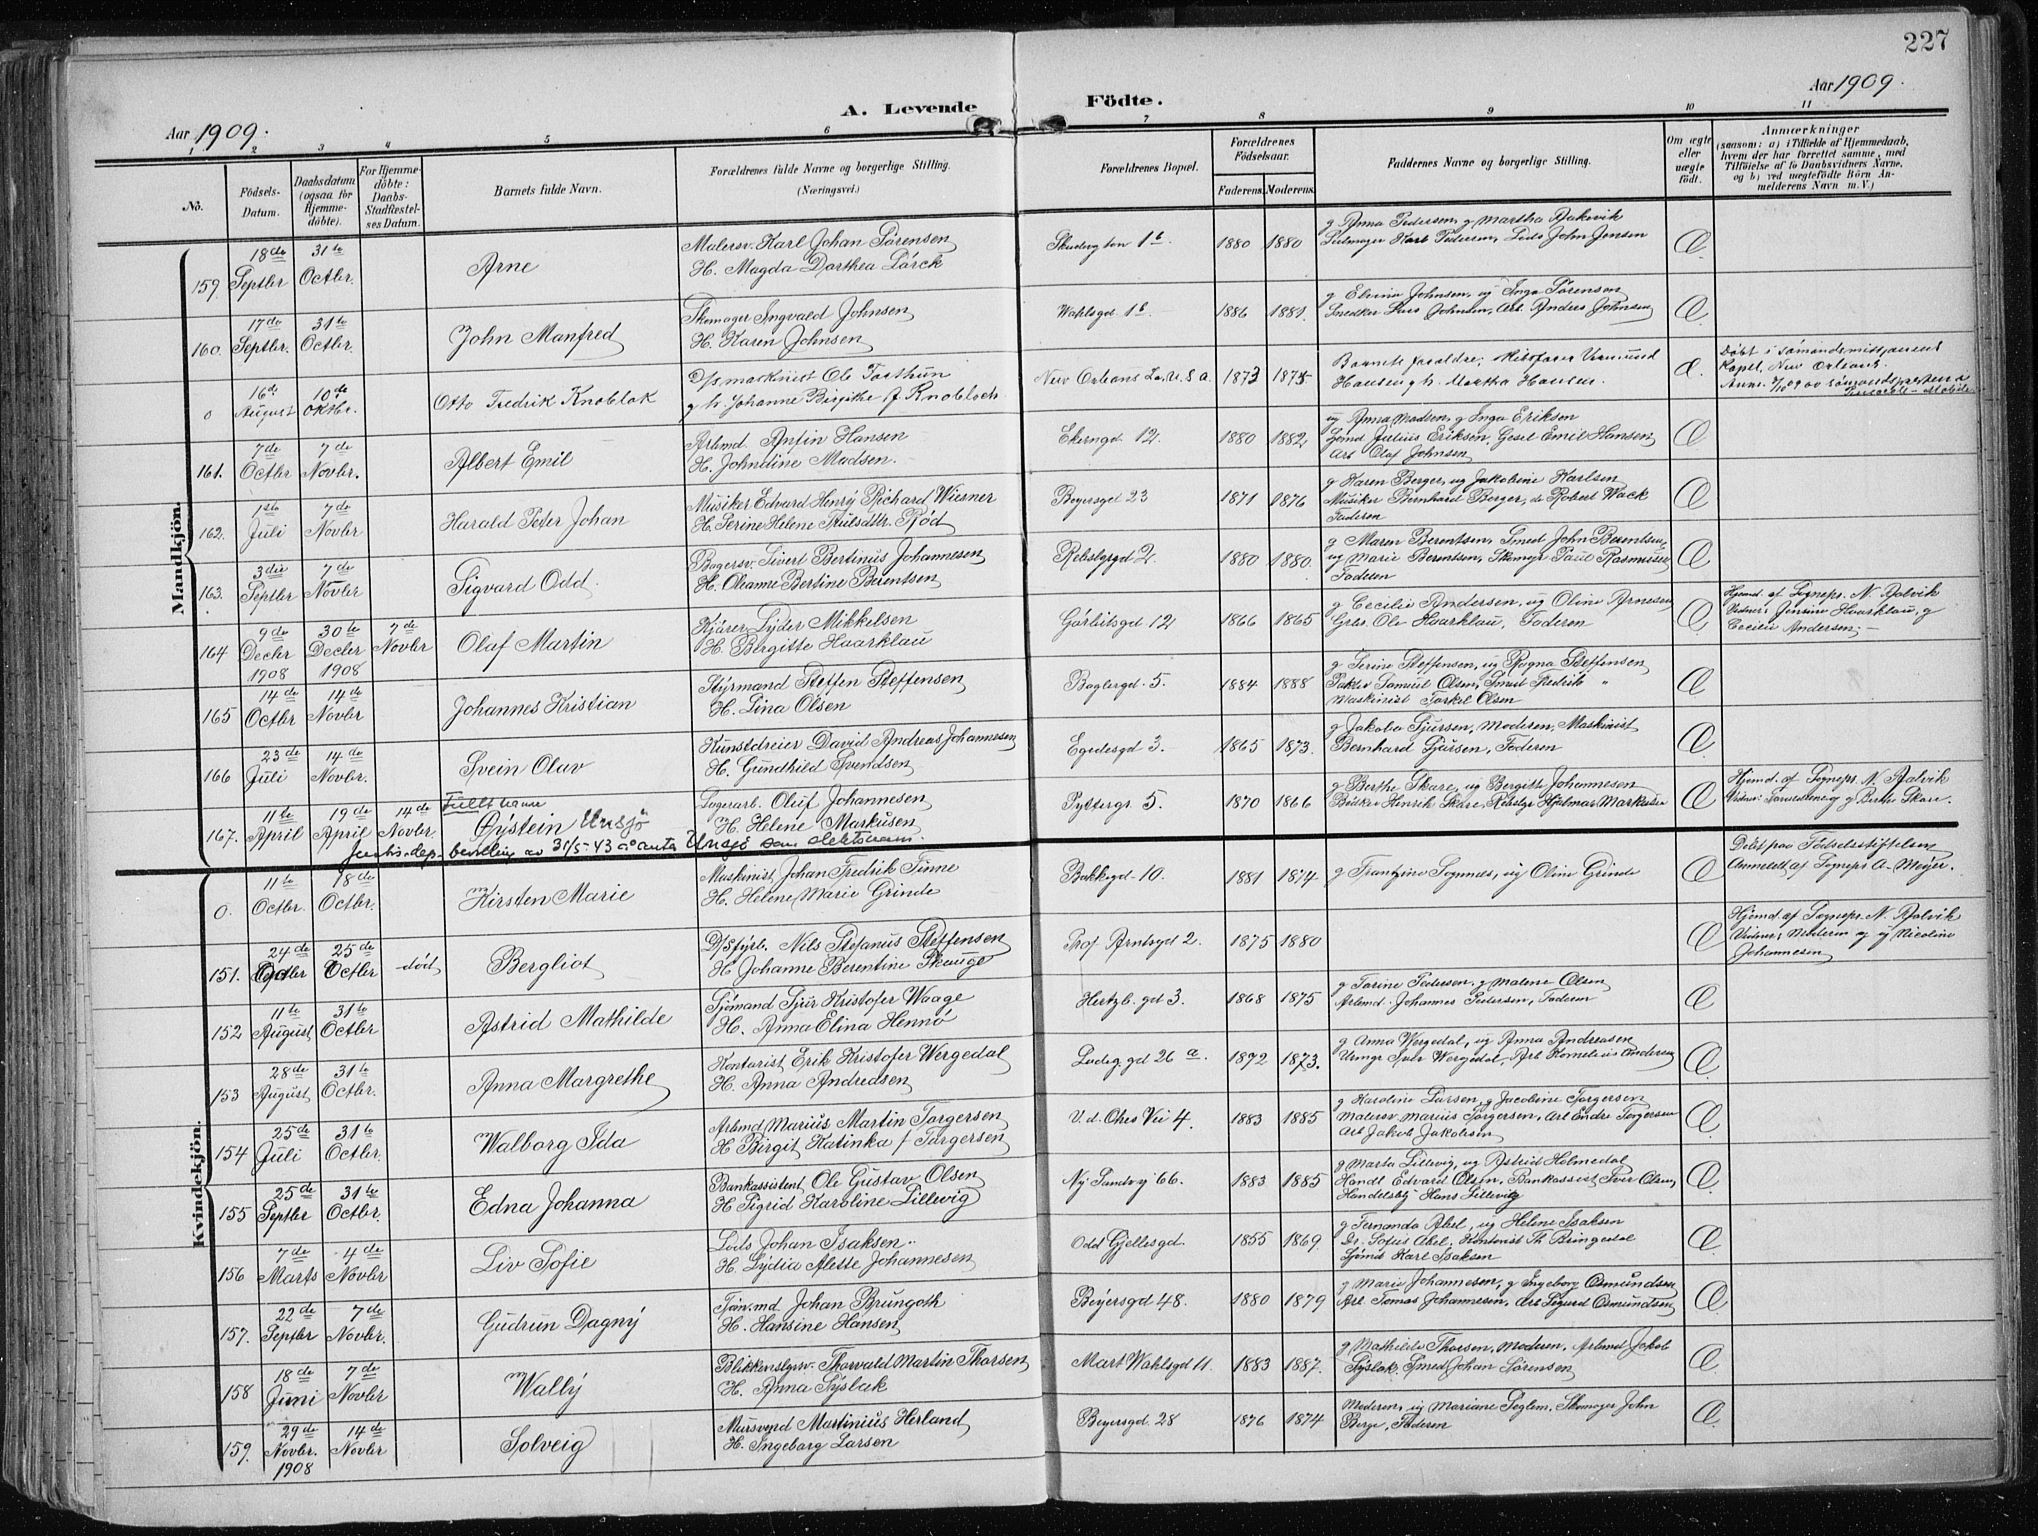 227
Aar 1909.
A. Levende Födte.
Aar 1909.
1 2 3 4 5 6 7 8 9 10 11
No.
Födsels-Datum.
Daabsdatum (ogsaa for Hjemmedöbte).
For Hjemmedöbte: Daabs-Stadfæstelses Datum.
Barnets fulde Navn.
Forældrenes fulde Navne og borgerlige Stilling. (Næringsvei.)
Forældrenes Bopæl.
Forældrenes Födselsaar.
Faderens. Moderens.
Faddernes Navne og borgerlige Stilling.
Om ægte eller uægte födt.
Anmærkninger (saasom: a) i Tilfælde af Hjemmedaab, hvem der har forrettet samme, med Tilföielse af to Daabsvidners Navne, og b) ved uægtefödte Börn Anmelderens Navn m. V.)
Mandkjön.
159. 18de Septbr 31te Octbr. Arne
Malersv. Karl Johan Sørensen
H. Magda Dorthea Lørck
1b. 1880 1880
g Anna Pedersen, g Martha
Karl Pedersen, Lods John Jensen
Æ.
160. 17de Septbr. 31te Octbr. John Manfred
Skomager Ingvald Johnsen
H. Karen Johnsen
Wahlsgd 1b. 1886 1881
g Elvina Johnsen, ug Inga Sørensen
Snedker Lars Johnsen, Arb. Anders Johnsen
Æ
0 16de August 10de Oktbr. Otto Fredrik Knoblok
D/s maskinist Ole Tosthun
g h. Johanne Birgithe f. Knobloch
New Orleans La. U.S.a. 1873 1875
Barnets forældre,
Hansen g h. Martha Hansen.
Æ.
Døbt i Sømandsmissionens
Kapel, New Orleans.
161. 7de Octbr 7de Novbr. Albert Emil
Arbmd Anfin Hansen
H. Johndine Madsen.
Ekerngd 12. 1880 1882
ug Anna Madsen, g Inga Eriksen
Julius Eriksen, Gesel Emil Hansen,
Arb Olaf Johnsen
Æ
162. 1ste Juli 7de Novbr Harald Peter Johan
Musiker Edvard Henry Richard Wiesner
H. Serine Helene Rød
Beyersgd 23 1871 1876
g Karen Berger, ug Jakobine Karlsen
Musiker Bernhard Berger, do Robert Wack
Faderen
Æ
163. 3die Septbr 7de Novbr Sigvard Odd.
Bagersv. Sivert Bertinus Johannesen
H. Oleanne Bertine Berentsen
Rebslgrgd 2. 1880 1880.
g Maren Berentsen, Smed John Berentsen,
ug Marie Berentsen, Skomgr Paul Rasmussen
Faderen
Æ
164 9de Decbr 1908 30te Decbr 1908 7de Novbr Olaf Martin
Kjører Syder Mikkelsen
H. Bergitte Haarklau
Görbitsgd 12 1866 1865
g Cecilie Andersen, ug Oline Arnesen
Grbs. Ole Haarklau, Faderen
Æ
Hjemd. af Sognepr. N. Aalvik
Vidner: Jensine Haarklau, g
Cecilie Andersen.
165 14de Octbr 14de Novbr. Johannes Kristian
Styrmand Steffen Steffensen
H. Lina Olsen
Baglergd. 5. 1884 1888
g Serine Steffensen, ug Ragna Steffensen
Samuel Olsen, Smed Fredrik "
Maskinist Torkel Olsen
Æ
166 23de Juli 14de Novbr. Svein Olav
Kunstdreier David Andreas Johannesen
H. Gundhild Svendsen
Egedesgd 3. 1865 1873.
g Jakoba Sjursen, Moderen, Maskinist
Bernhard Sjursen, Faderen
Æ
167. 11te April 19de April 14de Novbr. Fullt navn
Øystein Unsjø
Lagerarb. Oluf Johannesen
H. Helene Markusen
Pyttergr 5. 1870 1866
g Berthe Skare, ug Bergitte Johannesen
Bødker Henrik Skare, Rebslgr Hjalmar Markusen
Æ
Hjemd. af Sognepr. N. Aalvik
g Berthe Skare.
Justis-dep. bevilling av 31/5-43 å anta Unsjø som slektsnavn.
Kvindekjön.
0. 11te Octbr. 18de Octbr. Kirsten Marie
Maskinist Johan Fredrik Finne
H. Helene Marie Grinde
Bakkegd 10. 1881 1874
g Frantzine Sognnes, ug Oline Grinde
Æ
Døbt paa Fødselsstiftelsen
Anmeldt af Sognepr A. Meyer.
151. 24de Octbr 25de Octbr død Bergliot
D/Styrb. Nils Stefanus Steffensen
H Johanne Berentine Skauge
Prof Arntsgd 2. 1875 1880
Æ
Hjemd. af Sognepr. N. Aalvik
Vidner; Moderen og ug Nicoline
Johannesen
152 11te August 31te Octbr Astrid Mathilde
Sjömand Sjur Kristofer Waage
H. Anna Elina Hennø
Hertzb. gd 3. 1868 1875
g Tarine Pedersen, g Malene Olsen
Arbmd. Johannes Pedersen, Faderen
Æ
153 28de August 31te Octbr. Anna Margrethe
Kontorist Erik Kristofer Wergedal
H. Anna Andreasen
Ladeg. gd 26a. 1872 1873.
g Anna Wergedal, ug Anna Andreasen
Urmgr Iver Wergedal, Arb Kornelius Andersen
Æ.
154 25de Juli 31te Octbr. Walborg Ida
Arbmd Marius Martin Torgersen
H Birgit Katinka f Torgersen
V. d. Ohres Vei 4. 1883 1885
g Karoline Larsen, g Jacobine Torgersen
Malersv Marius Torgersen, Arb Endre Torgersen
Arb Jakob Jakobsen
Æ
155 25de Septbr 31te Octbr. Edna Johanna
Bankassistent Ole Gustav Olsen
H Sigrid Karoline Lillevig
Ny Sandvg 66. 1883 1885
g Marta Lillevig, ug Astrid Holmedal
Handl Edvard Olsen, Bankassist Iver Olsen,
Handelsbtj Hans Lillevig
Æ
156 7de Marts 4de Novbr Liv Sofie
Lods Johan Isaksen
H. Lydia Alette Johannesen
Odd Gjellesgd. 1855 1869
g Fernanda Abel, ug Helene Isaksen
Dr. Sofus Abel, Kontorist Th Bringedal
Sjömd Karl Isaksen
Æ.
157. 22de Septbr 7de Novbr. Gudrun Dagny
Johan Brungoth
H. Hansine Hansen
Beyersgd 48. 1880 1879
g Marie Johannesen, g Ingeborg Osmundsen
Arb. Tomas Johannesen, Arb Sigurd Osmundsen
Æ
158 18de Juni 7de Novbr Wally
Blikkenslgrsv. Thorvald Martin Thorsen
H. Anna Syslak
Mart Wahlsgd 11. 1883 1887.
g Mathilde Thorsen, Moderen, Arbmd Jakob
Syslak, Smed Johan Sørensen
Æ
159. 29de Novbr. 1908 14de Novbr Solveig
Mursvend Martinius Herland
H. Ingeborg Larsen
Beyersgd 28 1876 1874
Moderen, ug Mariane Teglem, Skomager John
Berge, Faderen
Æ